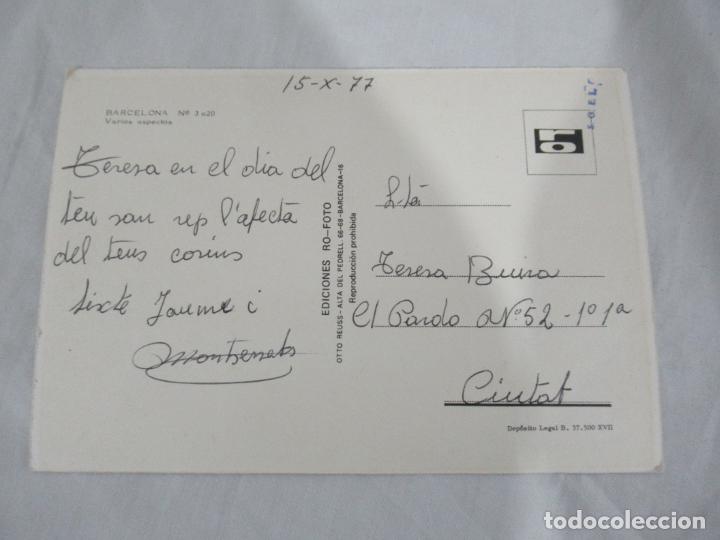 15-X-77
BARCELONA Nº 3 u20
Varios aspectos
Teresa en el dia del
teu san rep l'afecta
del teus cosins
Sixte Jaume i
Montserrats
EDICIONES RO-FOTO
OTTO REUSS - ALTA DEL PEDRELL, 66-68 - BARCELONA-16
Reproducción prohibida
Teresa
El Pardo Nº 52 - 1º 1ª
Ciutat
Depósito Legal B. 37.500 XVII
todocoleccion
todocoleccion.net